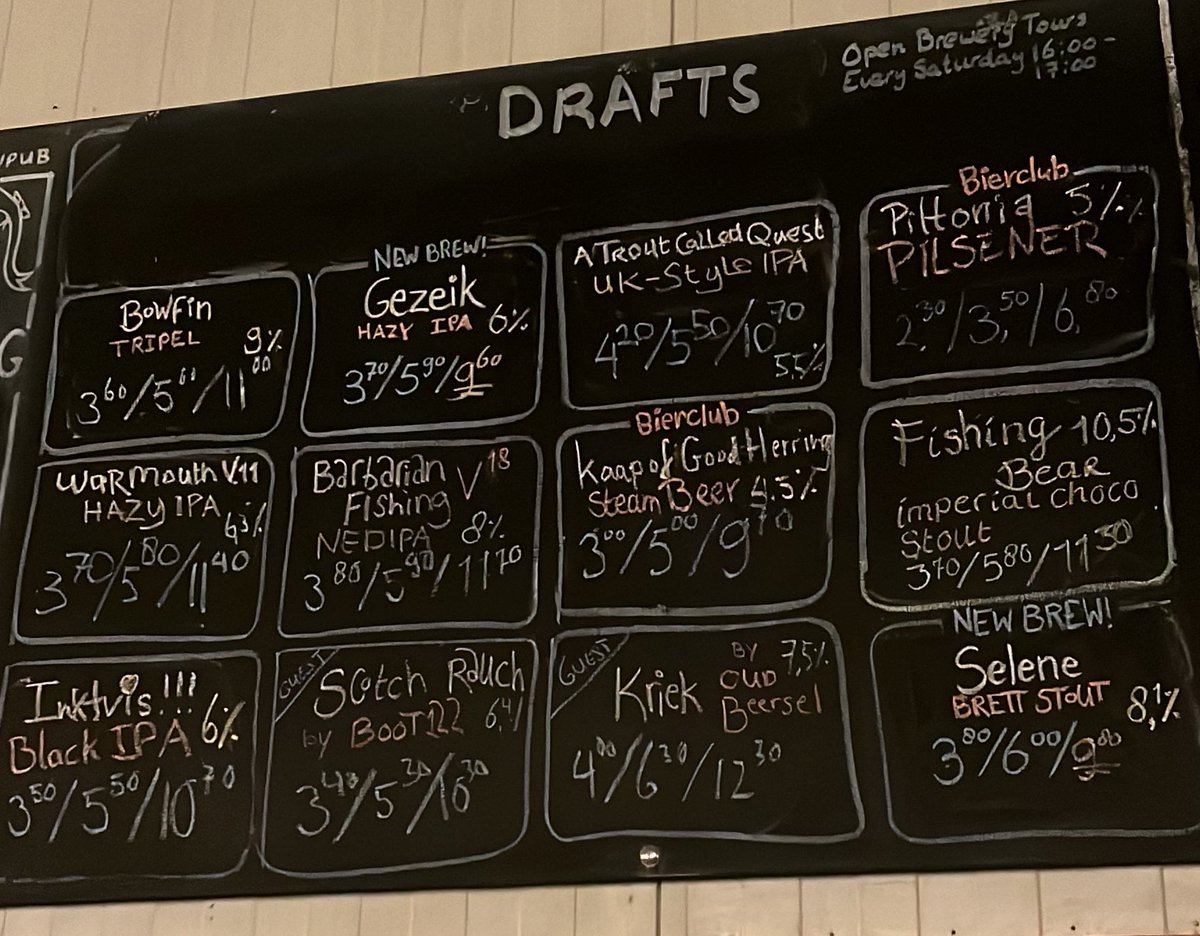 DRAFTS
Open Brewery Tours
Every Saturday 16:00-
17:00
PUB
G
Bowfin
TRIPEL 9%
3,60/5,60/11,00
NEW BREW!
Gezeik
HAZY IPA 6%
3,70/5,90/9,60
A Trout Called Quest
UK-Style IPA
4,20/5,50/10,70
5,5%
Bierclub
Pittonia 5%
PILSENER
2,30/3,50/6,80
WARMouth V.11
HAZY IPA
6,3%
3,70/5,80/11,40
Barbarian V18
Fishing
NEDIPA 8%
3,80/5,90/11,70
Bierclub
Kaap of Good Herring
Steam Beer 4.5%
3,00/5,00/9,70
Fishing 10,5%
Bear
imperial choco
Stout
3,70/5,80/11,30
Inktvis!!!
Black IPA 6%
3,50/5,50/10,70
GUEST
Scotch Rauch
by BOOT122 6,4%
3,40/5,30/10,30
GUEST
Kriek BY OUD Beersel 7,5%
4,00/6,30/12,30
NEW BREW!
Selene
BRETT STOUT 8,1%
3,80/6,00/9,80